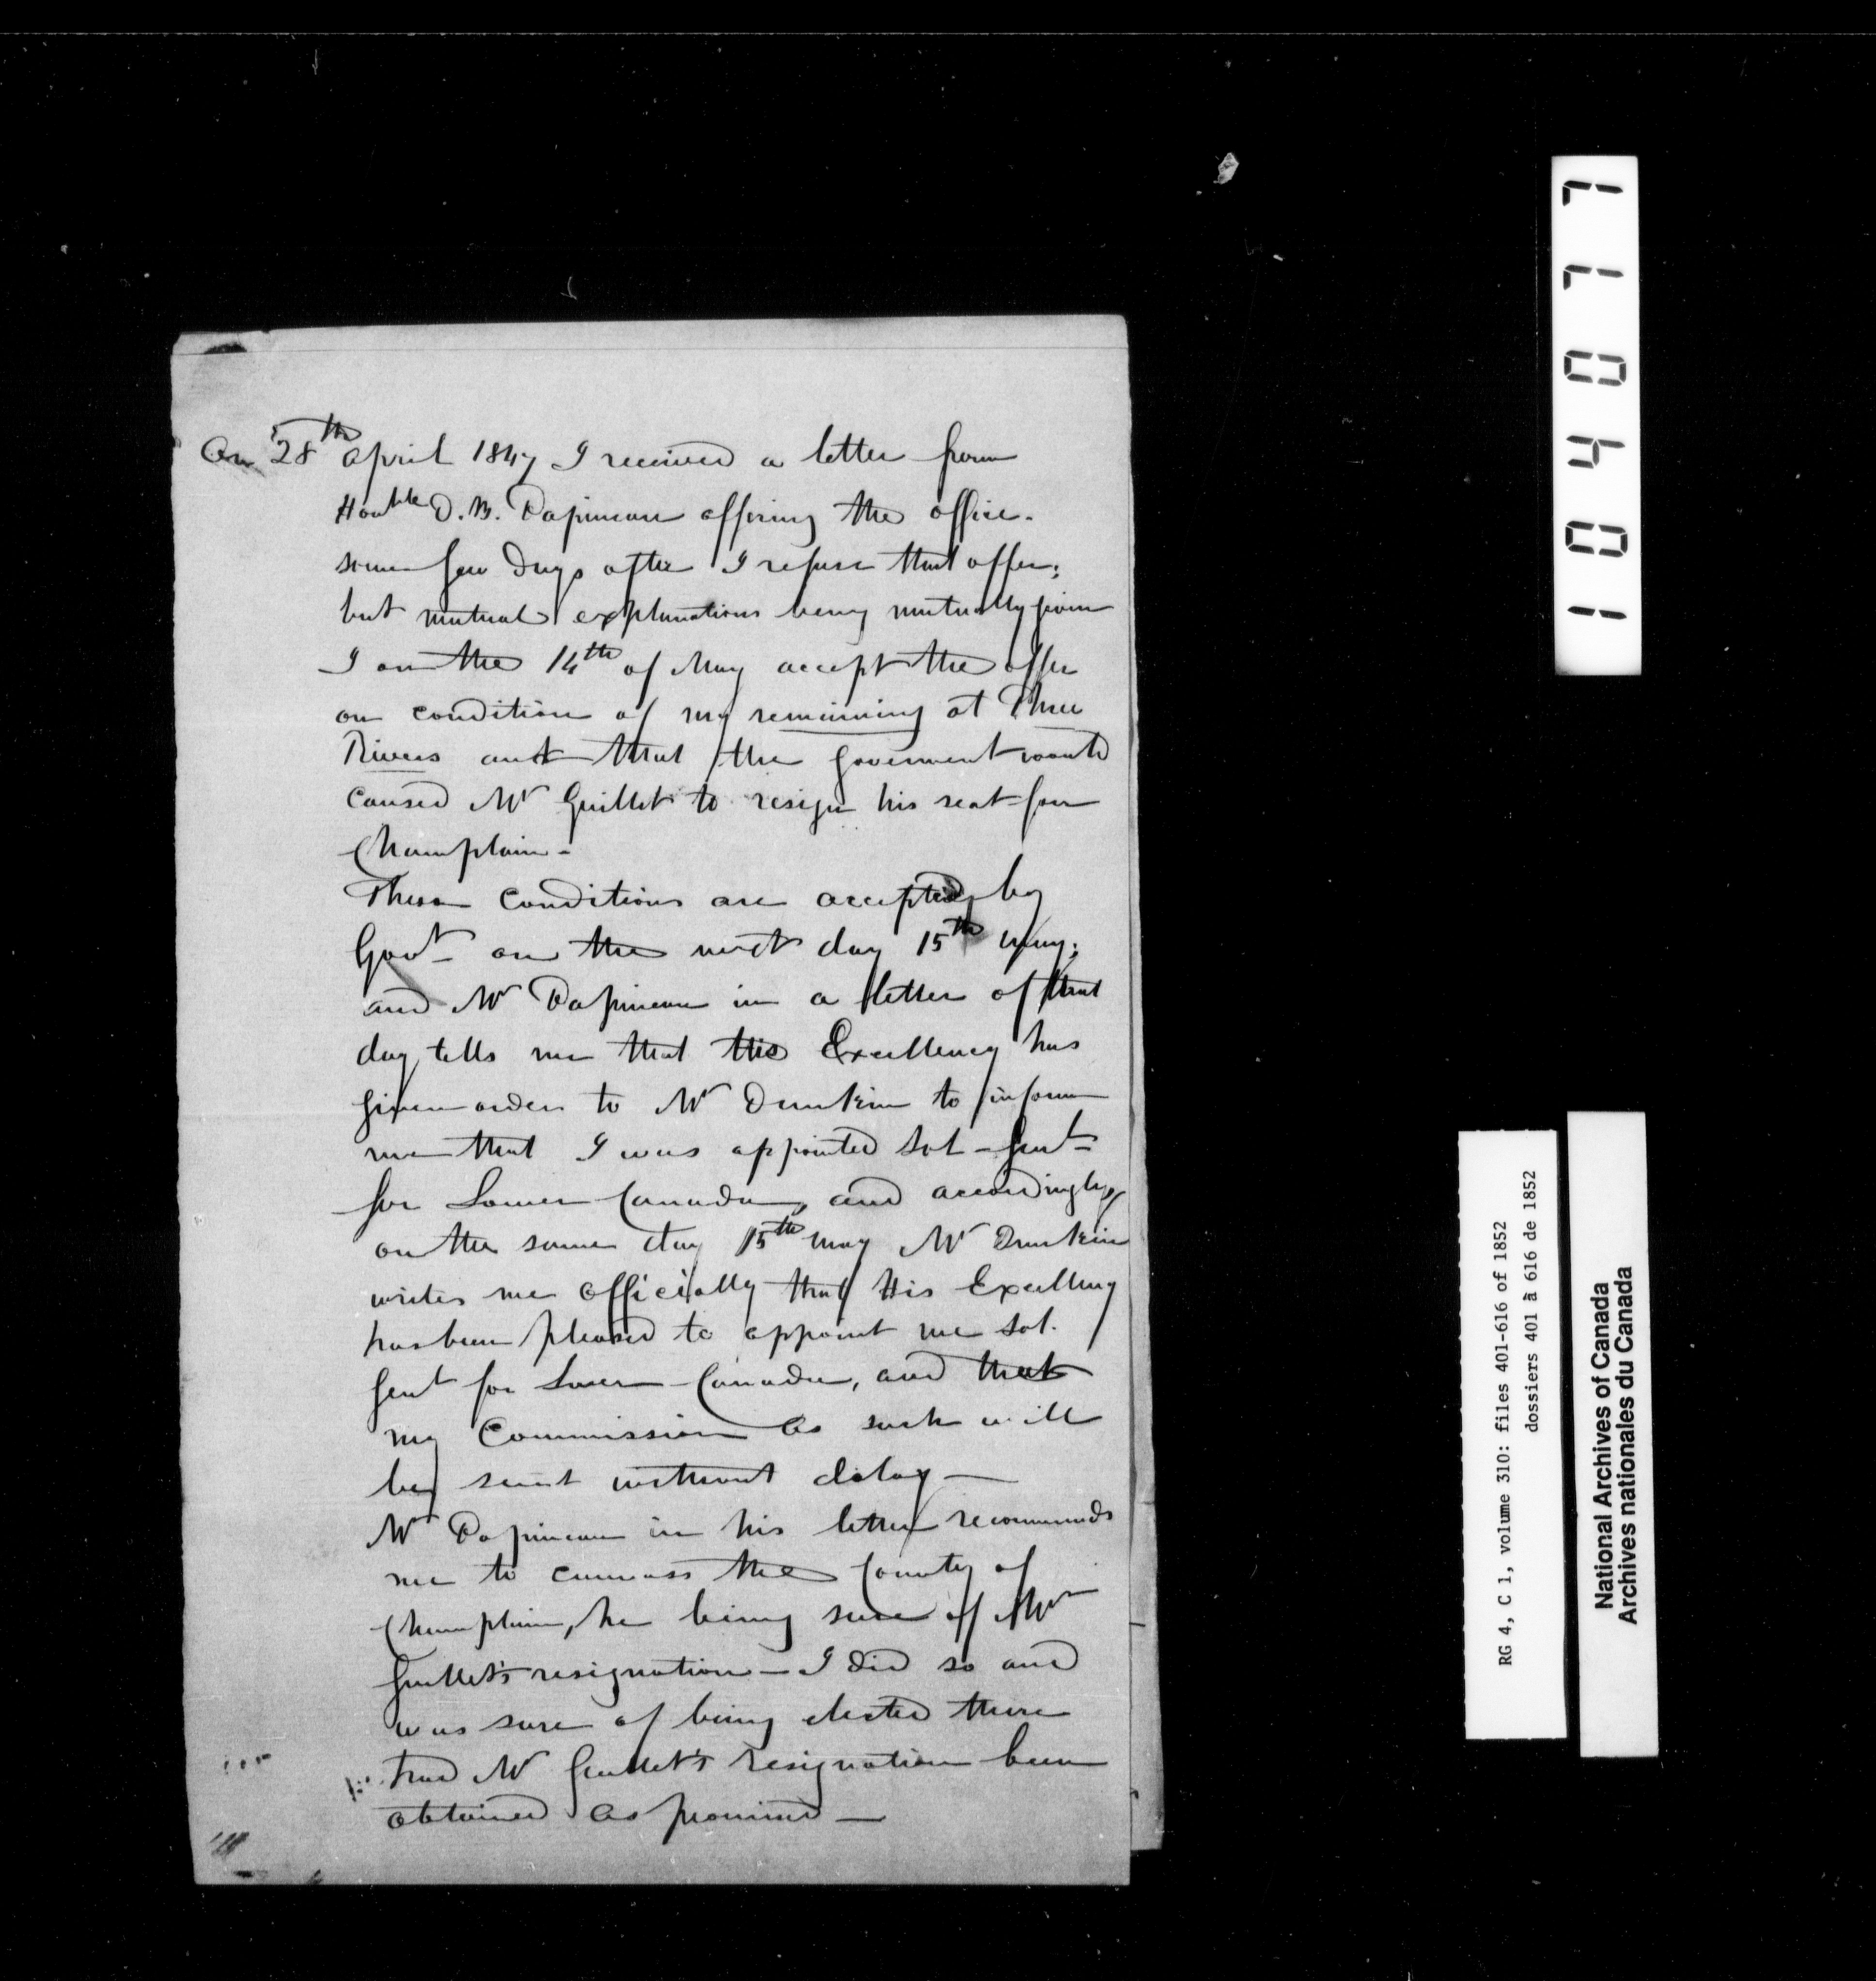 On 28th April 1847 I received a letter from
Honble D. B. Papineau offering the office.
some few days after I refuse that offer;
but mutual explanations being mutually given
I on the 14th of May accept the offer
on condition of my remaining at Three
Rivers and that the Goverment would
caused Mr Guillet to resign his seat for
Champlain -
These conditions are accepted by
Govt on the next day 15th May;
and Mr Papineau in a letter of that
day tells me that His Excellency has
given orders to Mr Dunkin to inform
me that I was appointed Sol - Genl -
for Lower Canada, and accordingly
on the same day 15th May Mr Dunkin
writes me officially that His Excellency
has been pleased to appoint me Sol.
Genl for Lower - Canada, and that
my Commission as such will
be sent without delay -
Mr Papineau in his letter recommends
me to canvass the County of
Champlain, he being sure of Mr
Guillet's resignation - I did so and
was sure of being elected there
had Mr Guillet's resignation been
obtained as promised -
104077
RG 4, C 1, volume 310: files 401-616 of 1852
dossiers 401 à 616 de 1852
National Archives of Canada
Archives nationales du Canada